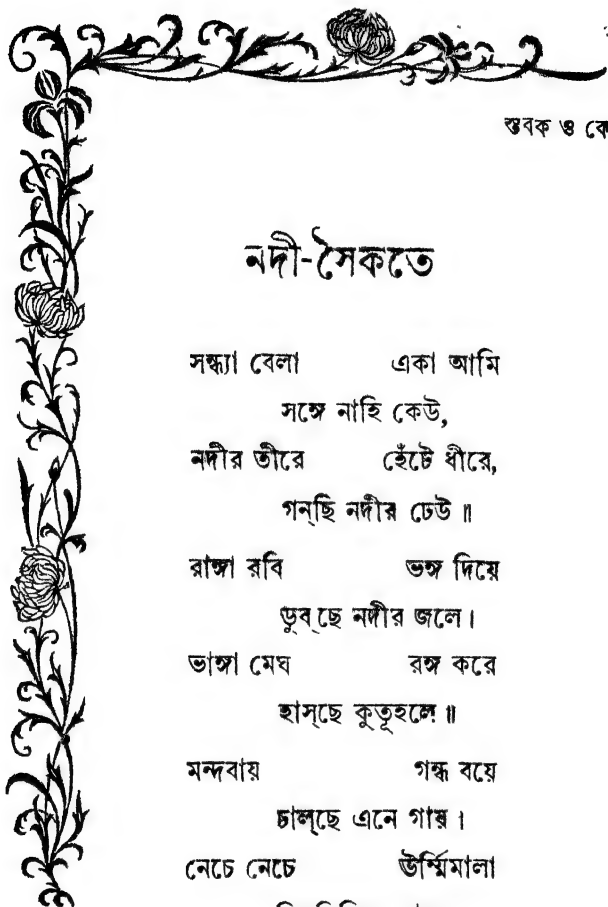 স্তবক ও
নদী-সৈকতে
সন্ধ্যা বেলা একা আমি
সঙ্গে নাহি কেউ,
নদীর তীরে হেঁটে ধীরে,
গন্‌ছি নদীর ঢেউ॥
রাঙ্গা রবি ভঙ্গ দিয়ে
ডুব্‌ছে নদীর জলে।
ভাঙ্গা মেঘ রঙ্গ করে
হাস্‌ছে কুতূহলে॥
মন্দবায় গন্ধ বয়ে
ঢাল্‌ছে এনে গায়।
নেচে নেচে ঊর্ম্মিমালা